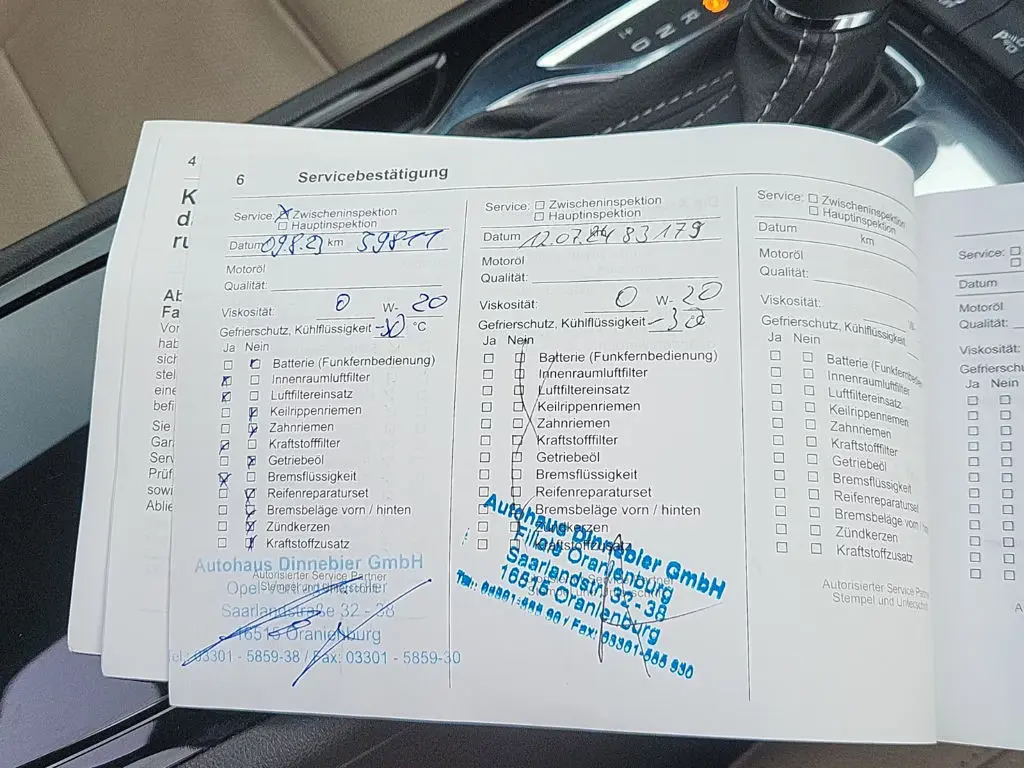 R
D
4
K
d
ru
Ab
Fa
Vor
hab
sich
stel
eine
befi
Sie
Gar
Serv
Prüf
sowi
Ablie
6 Servicebestätigung
Service: Zwischeninspektion
Hauptinspektion
Datum km 59811
Motoröl
Qualität:
Viskosität: 0 W- 20
Gefrierschutz, Kühlflüssigkeit -30 °C
Ja Nein
Batterie (Funkfernbedienung)
Innenraumluftfilter
Luftfiltereinsatz
Keilrippenriemen
Zahnriemen
Kraftstofffilter
Getriebeöl
Bremsflüssigkeit
Reifenreparaturset
Bremsbeläge vorn / hinten
Zündkerzen
Kraftstoffzusatz
Autohaus Dinnebier GmbH
Autorisierter Service Partner
Saarlandstraße 32 - 38
16515 Oranienburg
Tel.: 03301 - 5859-38 / Fax: 03301 - 5859-30
Service: Zwischeninspektion
Hauptinspektion
Datum 12.07.24 83179
Motoröl
Qualität:
Viskosität: 0 W- 20
Gefrierschutz, Kühlflüssigkeit -30
Ja Nein
Batterie (Funkfernbedienung)
Innenraumluftfilter
Luftfiltereinsatz
Keilrippenriemen
Zahnriemen
Kraftstofffilter
Getriebeöl
Bremsflüssigkeit
Reifenreparaturset
Bremsbeläge vorn / hinten
Zündkerzen
Kraftstoffzusatz
Autohaus Dinnebier GmbH
Filiale Oranienburg
Saarlandstr. 32 - 38
16515 Oranienburg
Service: Zwischeninspektion
Hauptinspektion
Datum km
Motoröl
Qualität:
Viskosität:
Gefrierschutz, Kühlflüssigkeit
Ja Nein
Batterie (Funkfernbe
Innenraumluftfilter
Luftfiltereinsatz
Keilrippenriemen
Zahnriemen
Kraftstofffilter
Getriebeöl
Bremsflüssigkeit
Reifenreparaturset
Bremsbeläge vorn
Zündkerzen
Kraftstoffzusatz
Autorisierter Service Par
Stempel und Unterschrift
Service:
Datum
Motoröl
Qualität:
Viskosität:
Gefriersch
Ja Nein
A